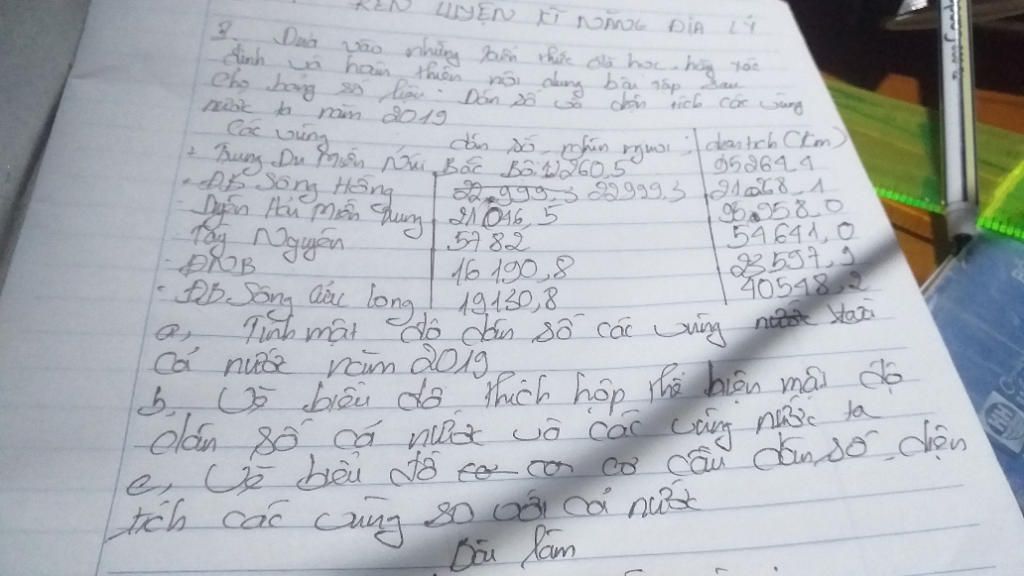 RÈN LUYỆN KĨ NĂNG ĐỊA LÝ
? Dựa vào những kiến thức đã học hãy xác
định và hoàn thiện nội dung bài tập sau
Cho bảng số liệu: Dân số và diện tích các vùng
nước ta năm 2019
Các vùng dân số nghìn người diện tích (Km)
+ Trung Du Miền Núi Bắc Bộ 260,5 95264,4
- ĐB Sông Hồng 22.999,3 22999,3 21268,1
- Duyên Hải Miền Trung 21016,5 95.958,0
Tây Nguyên 5782 54641,0
- ĐNB 16190,8 23597,9
- ĐB Sông Cửu Long 19130,8 40548,2
a, Tính mật độ dân số các vùng nước
cả nước năm 2019
b, Vẽ biểu đồ thích hợp thể hiện mật độ
dân số cả nước và các vùng nước ta
c, Vẽ biểu đồ cơ cấu dân số diện
tích các vùng so với cả nước
Bài làm